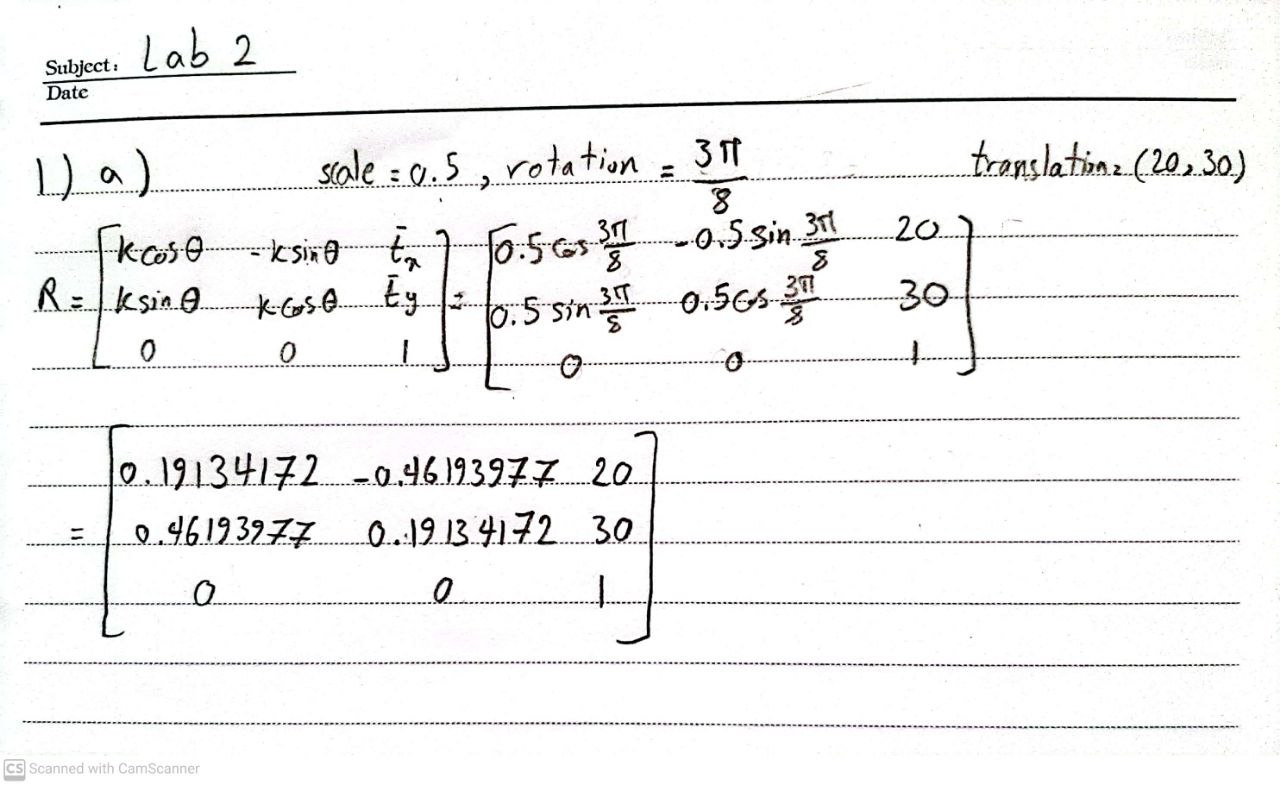 Subject: Lab 2
Date
1) a) scale = 0.5, rotation = 3π/8 translation = (20, 30)
R = [kcosθ -ksinθ t̄x; ksinθ kcosθ t̄y; 0 0 1] = [0.5 cos 3π/8 -0.5 sin 3π/8 20; 0.5 sin 3π/8 0.5 cos 3π/8 30; 0 0 1]
= [0.19134172 -0.46193977 20; 0.46193977 0.19134172 30; 0 0 1]
CS Scanned with CamScanner